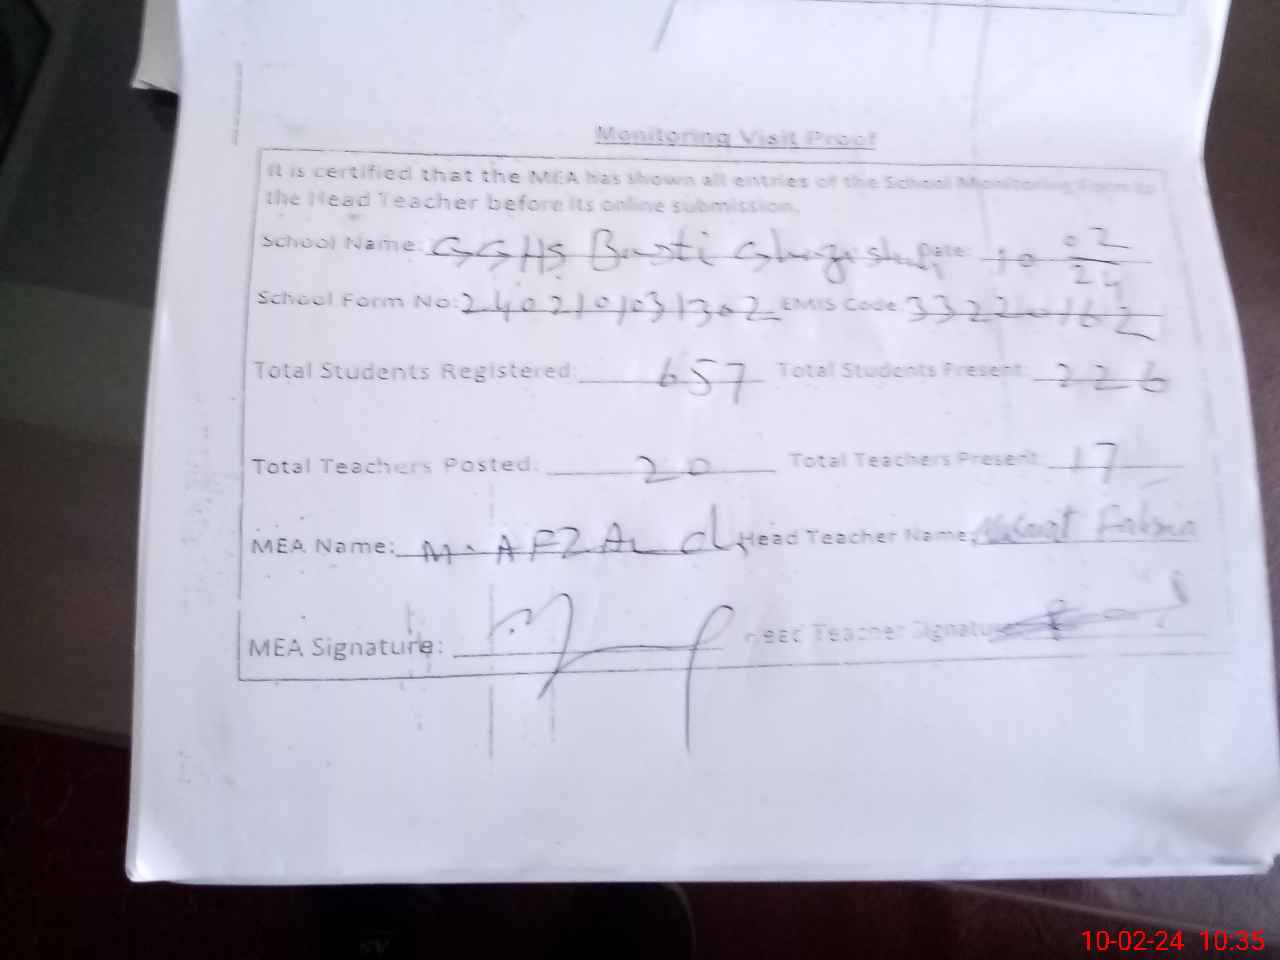 Monitoring Visit Proof
It is certified that the MEA has shown all entries of the School Monitoring Form to
the Head Teacher before its online submission.
School Name: GGHS Basti Date: 10 02/24
School Form No: 2402101031302 EMIS Code 33220162
Total Students Registered: 657 Total Students Present: 226
Total Teachers Posted: 20 Total Teachers Present: 17
MEA Name: M. AFZAL Head Teacher Name:
MEA Signature: Head Teacher Signature
10-02-24 10:35